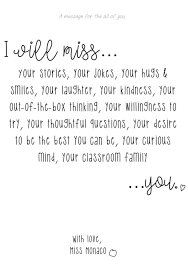 A message for the all of you,
I will miss...
your stories, your jokes, your hugs &
smiles, your laughter, your kindness, your
out-of-the-box thinking, your willingness to
try, your thoughtful questions, your desire
to be the best you can be, your curious
mind, your classroom family
...you.
With love,
Miss Monaco